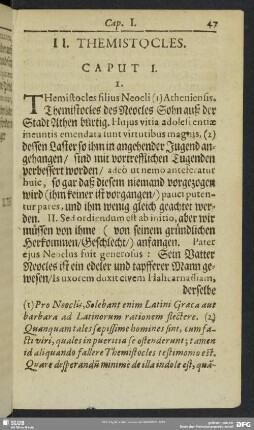 Cap. I. 47
II. THEMISTOCLES.
CAPUT I.
I.
THemistocles filius Neocli (1) Atheniensis.
Themistocles des Neocles Sohn auß der
Stadt Athen bürtig. Hujus vitia adolescentiæ
ineuntis emendata sunt virtutibus magnis, (2)
dessen Laster so ihm in angehender Jugend an-
gehangen / sind mit vortrefflichen Tugenden
verbessert worden / adeò ut nemo anteferatur
huic, so gar daß diesem niemand vorgezogen
wird (ihm keiner ist vorgangen) pauci puten-
tur pares, und ihm wenig gleich geachtet wer-
den. II. Sed ordiendum est ab initio, aber wir
müssen von ihme ( von seinem gründlichen
Herkommen/Geschlecht/) anfangen. Pater
ejus Neoclus fuit generosus: Sein Vatter
Neocles ist ein edeler und tapfferer Mann ge-
wesen/Is uxorem duxit civem Halicarnassiam,
derselbe
(1) Pro Neoclis, Solebant enim Latini Græca aut
barbara ad Latinorum rationem flectere. (2)
Quanquam tales sæpissime homines sint, cum fa-
cti viri, quales in pueritia se ostenderunt; tamen
id aliquando fallere Themistocles testimonio est.
Quare desperandũ minimè de illa indole est, quã-
SLUB
DFG